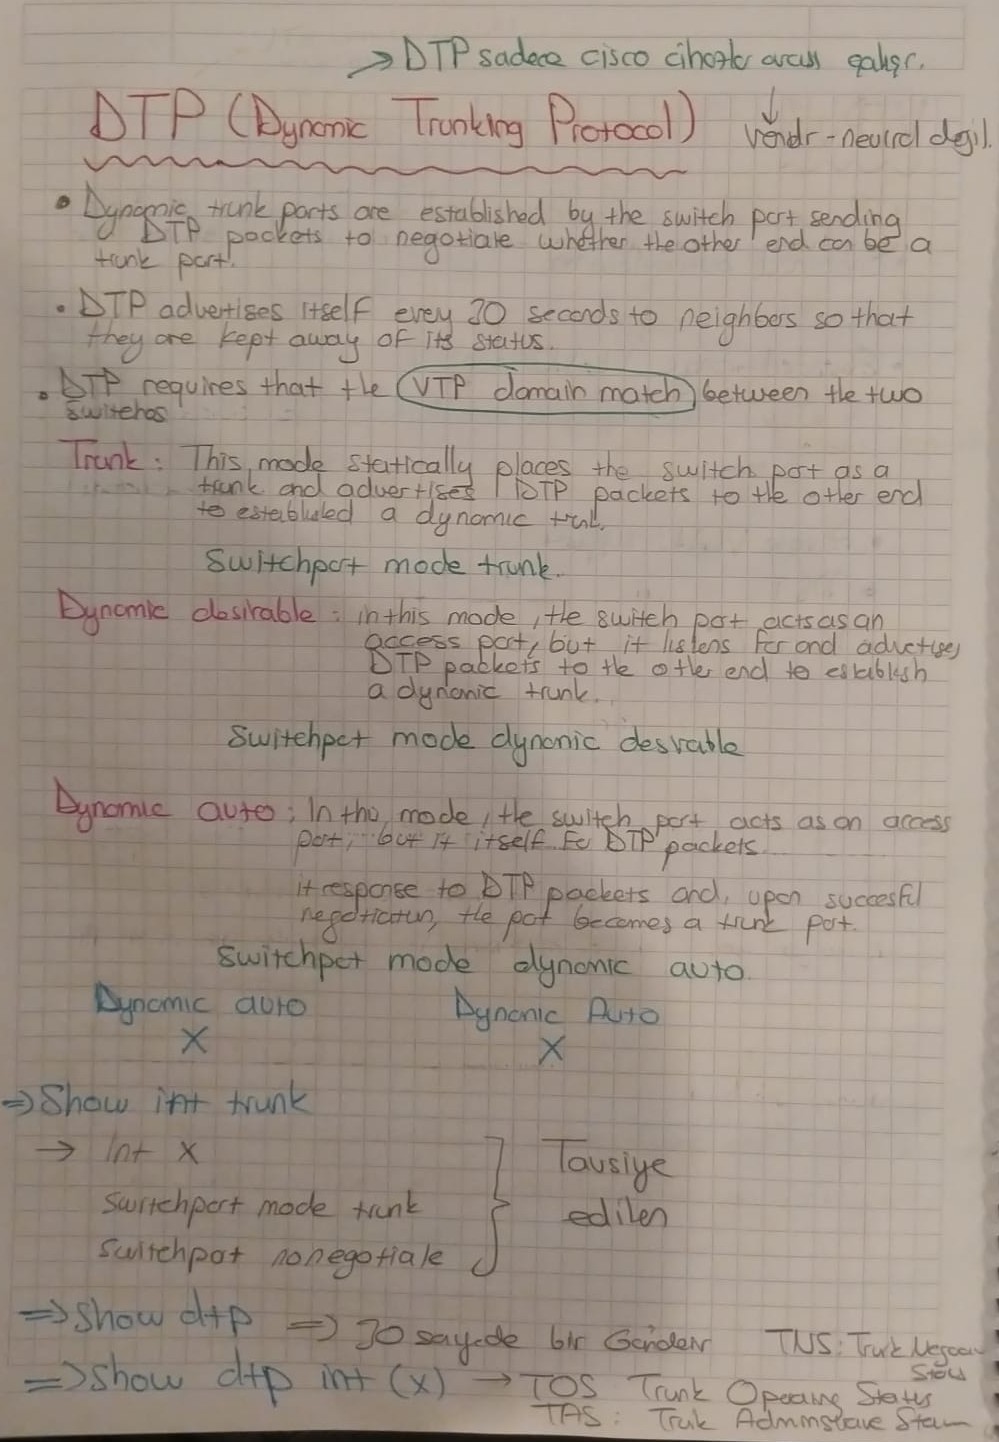 → DTP sadece cisco cihazlar arası çalışır.
DTP (Dynamic Trunking Protocol)
↓
vendr-neutral değil.
• Dynamic trunk ports are established by the switch port sending
DTP packets to negotiate whether the other end can be a
trunk port.
• DTP advertises itself every 30 seconds to neighbors so that
they are kept away of its status.
• DTP requires that the VTP domain match between the two
switches
Trunk: This mode statically places the switch port as a
trunk and advertises DTP packets to the other end
to established a dynamic trunk.
Switchport mode trunk.
Dynamic desirable: in this mode, the switch port acts as an
access port, but it listens for and advertises
DTP packets to the other end to establish
a dynamic trunk.
Switchport mode dynamic desirable
Dynamic auto: In this mode, the switch port acts as an access
port, but it itself for DTP packets.
it response to DTP packets and, upon succesful
negotiation, the port becomes a trunk port.
Switchport mode dynamic auto.
Dynamic auto Dynamic Auto
X X
⇒ Show int trunk
→ int x
switchport mode trunk
switchport nonegotiate
Tavsiye
edilen
⇒ Show dtp ⇒ 30 saniyede bir Gönderir
TNS: Trunk
⇒ show dtp int (x) → TOS Trunk Operating Status
TAS: Trunk Administrative